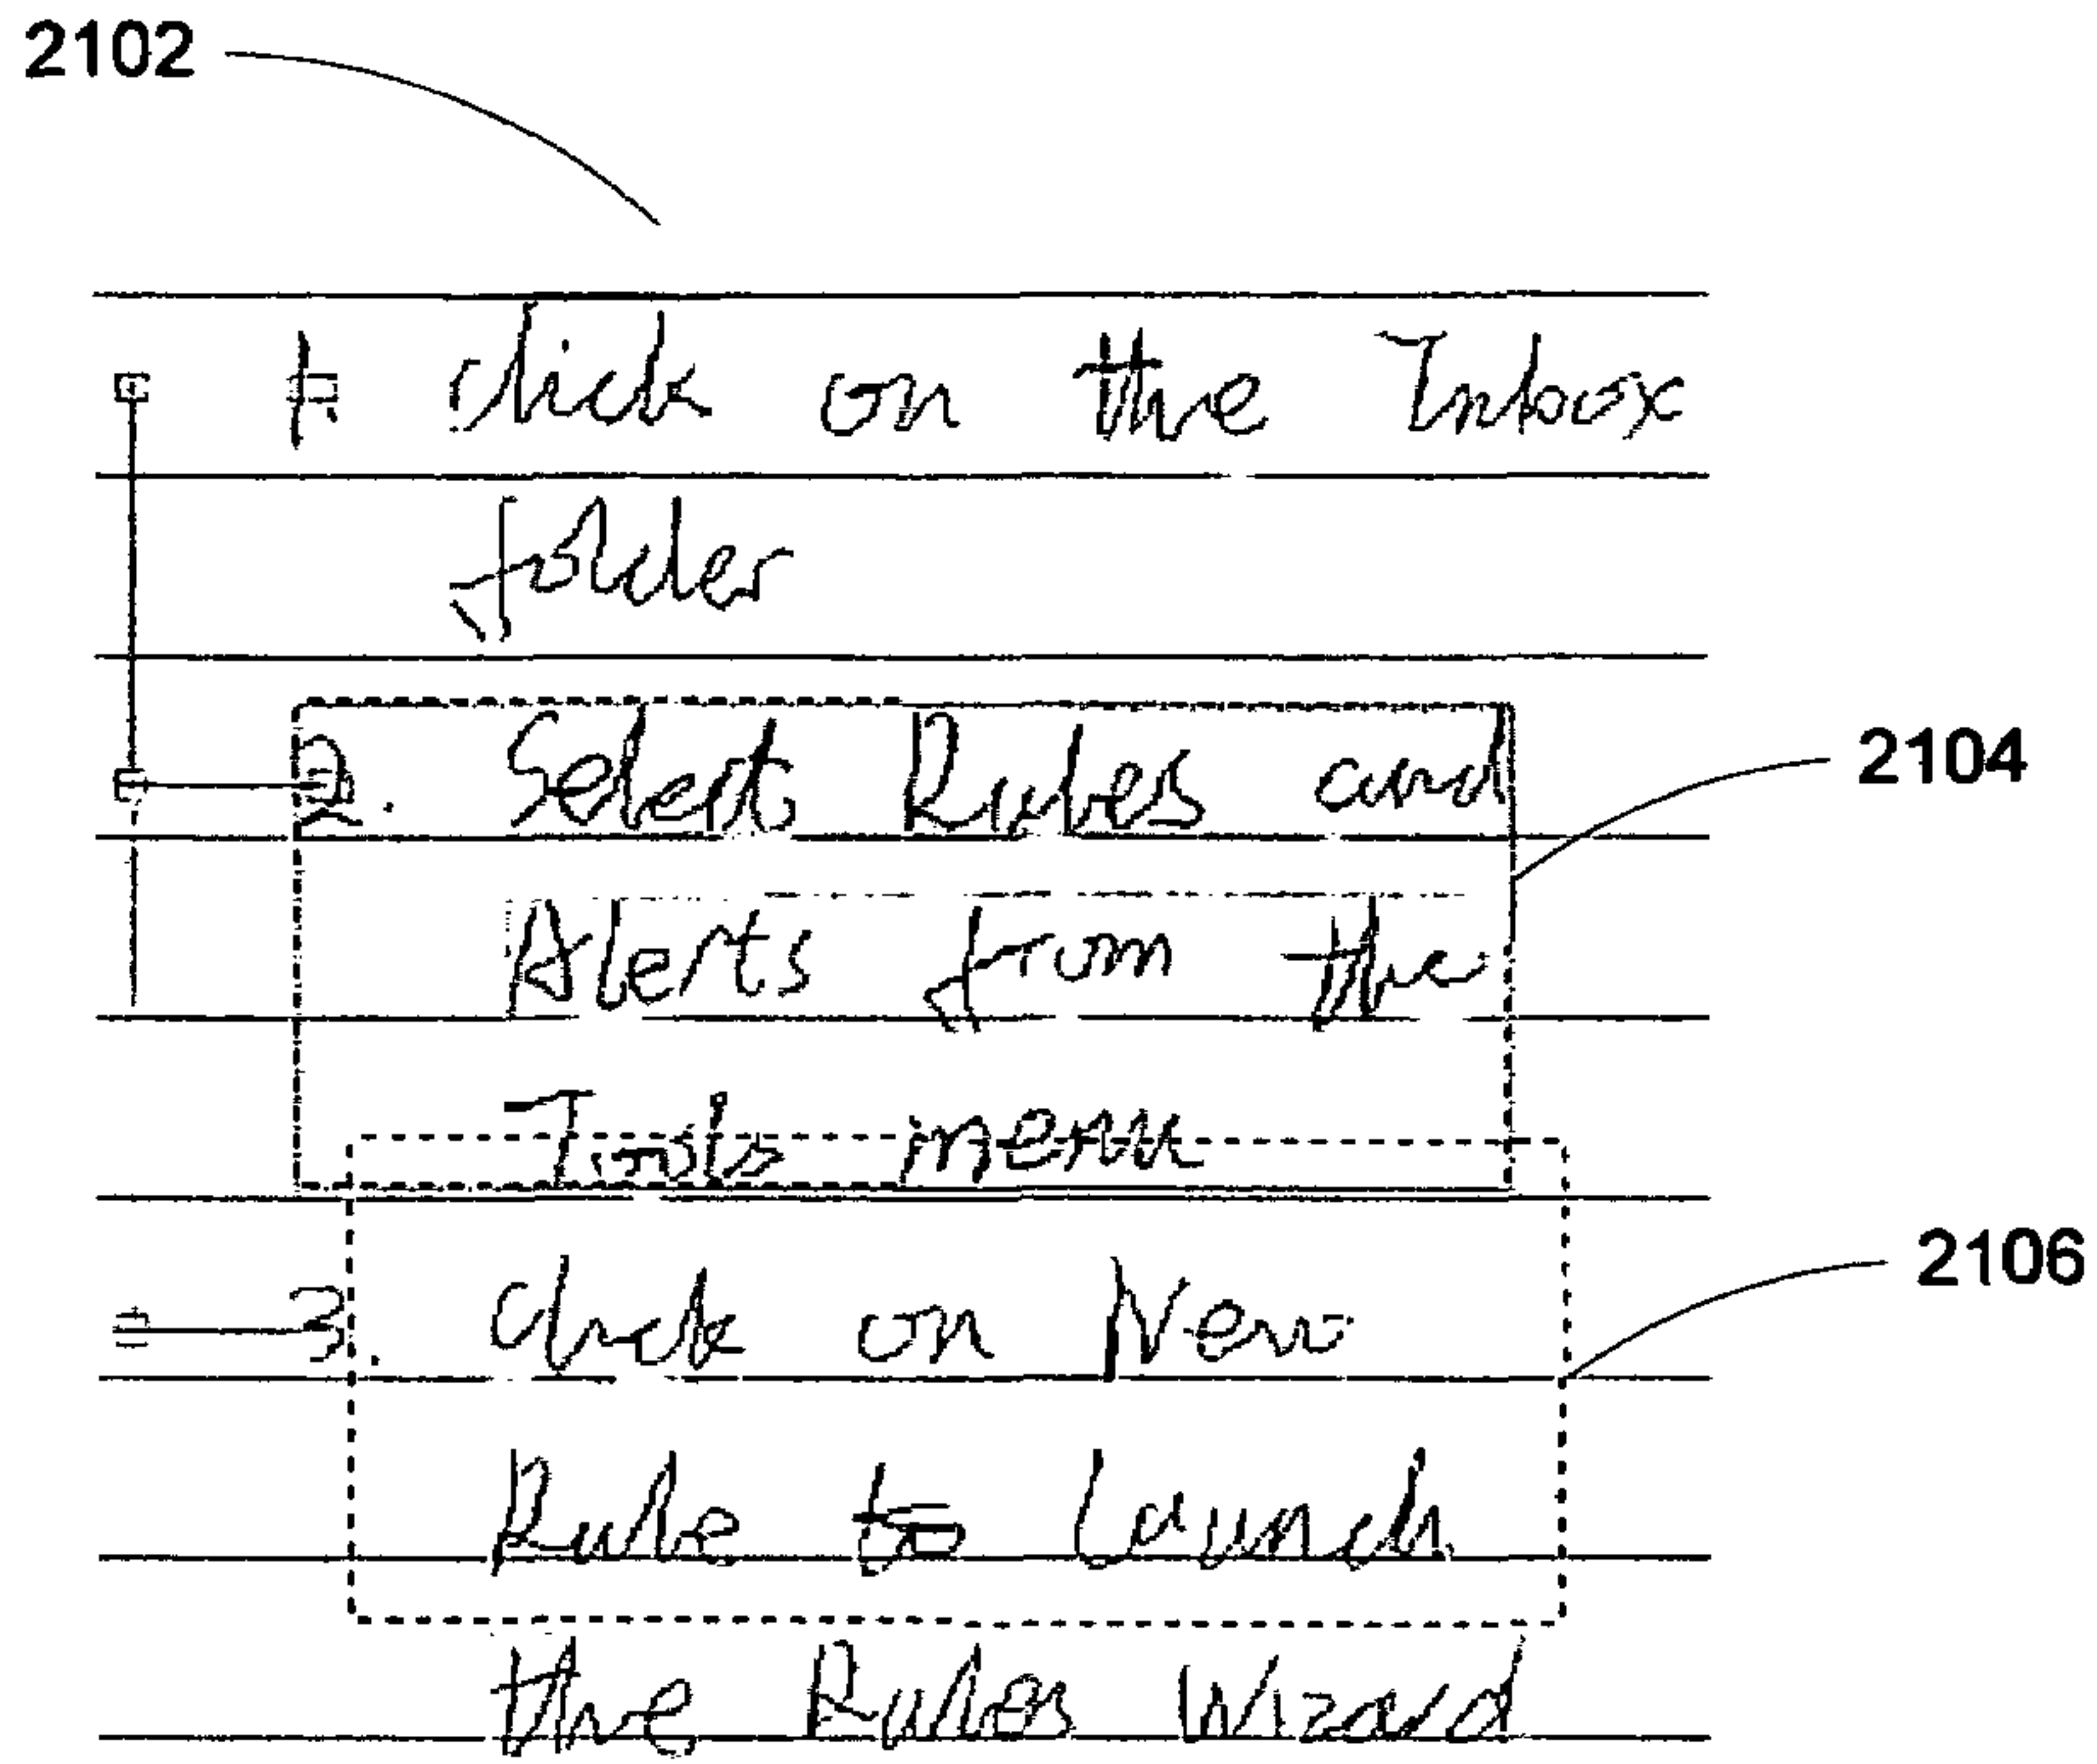 2102
1. click on the Inbox
folder
2. Select Rules and
2104
Alerts from the
Tools menu
2106
3. Click on New
Rule to launch
the Rules Wizard